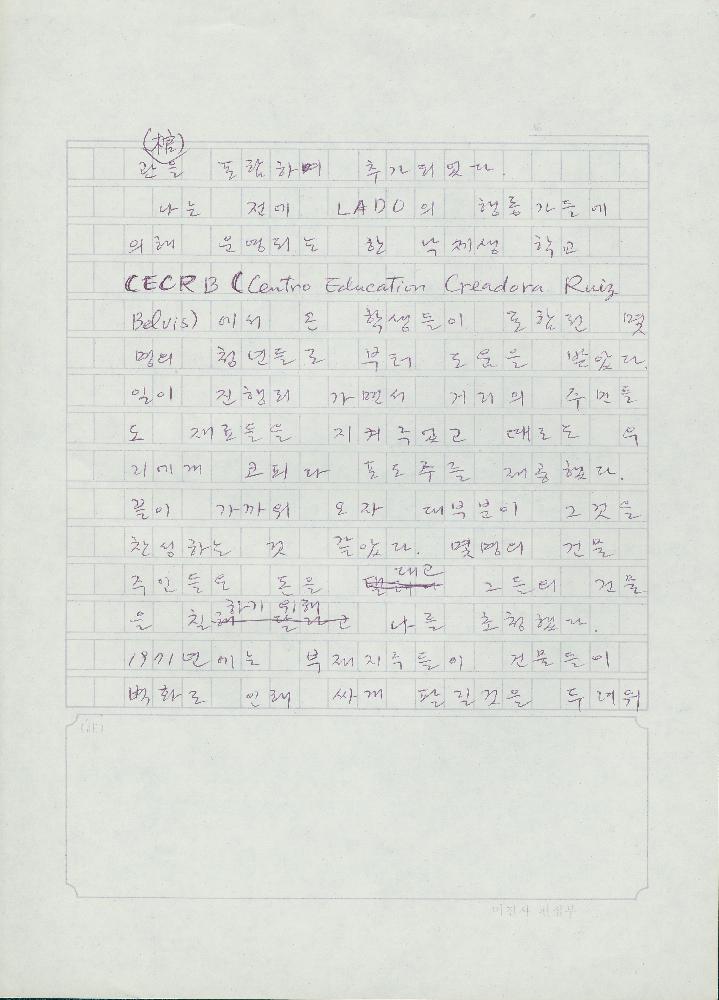 (棺)
관을 포함하며 추가되었다.
나는 전에 LADO의 행동가들에
의해 운영되는 한 낙제생 학교
CECRB (Centro Education Creadora Ruiz
Belvis)에서 온 학생들이 포함된 몇
명의 청년들로 부터 도움을 받았다.
일이 진행되 가면서 거리의 주민들
도 재료들을 지켜주었고 때로는 우
리에게 코피나 포도주를 제공했다.
끝이 가까워 오자 대부분이 그것을
찬성하는 것 같았다. 몇명의 건물
대고
주인들은 돈을 그들의 건물
하기 위해
을 칠 나를 초청했다.
1971년에는 부재지주들이 건물들이
벽화로 인해 싸게 팔릴것을 두려워
(註)
미진사 편집부